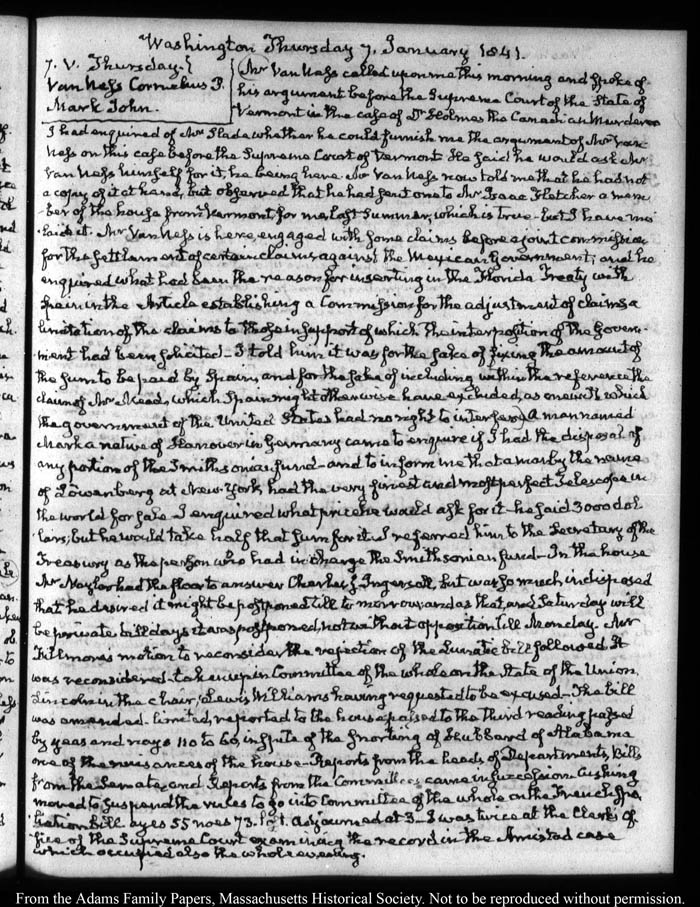 Washington Thursday 7. January 1841.
7. V. Thursday.
Van Ness Cornelius P.
Mark John.
Mr Van Ness called upon me this morning and spoke of
his argument before the Supreme Court of the State of
Vermont in the case of Dr Holmes the Canadian Murderer
I had enquired of Mr Slade whether he could furnish me the argument of Mr Van
Ness on this case before the Supreme Court of Vermont He said he would ask Mr
Van Ness himself for it, he being here. Mr Van Ness now told me that he had not
a copy of it at hand, but observed that he had sent one to Mr Isaac Fletcher a mem-
ber of the house from Vermont for me, last Summer, which is true - but I have mis-
laid it. Mr Van Ness is here, engaged with some claims before a joint commission
for the settlement of certain claims against the Mexican Government; and he
enquired what had been the reason for inserting in the Florida Treaty with
Spain in the Article establishing a Commission for the adjustment of claims a
limitation of the claims to those in support of which the interposition of the Govern-
ment had been solicited - I told him it was for the sake of fixing the amount of
the sum to be paid by Spain, and for the sake of including within the reference the
claim of Mr Mead, which Spain might otherwise have excluded, as one with which
the government of the United States had no right to interfere. A man named
Mark a native of Hanover in Germany came to enquire if I had the disposal of
any portion of the Smithsonian fund - and to inform me that a man by the name
of Löwenberg at New-York had the very finest and most perfect Telescope in
the world for sale I enquired what price he would ask for it - he said 3000 dol-
lars; but he would take half that sum for it. I referred him to the Secretary of the
Treasury as the person who had in charge the Smithsonian fund - In the house
Mr Naylor had the floor to answer Charles J. Ingersoll, but was so much indisposed
that he desired it might be postponed till to morrow, and as that, and Saturday will
be private bill days it was postponed, not without opposition till Monday. Mr
Fillmore's motion to reconsider the rejection of the Lunatic bill followed. It
was reconsidered - taken up in Committee of the whole on the State of the Union,
Lincoln in the chair, Lewis Williams having requested to be excused - The bill
was amended - limited, reported to the house passed to the third reading passed
by yeas and nays 110 to 60, in spite of the snorting of Hubbard of Alabama
one of the nuisances of the house - Reports from the heads of Departments, Bills
from the Senate, and Reports from the Committees came in succession Cushing
moved to suspend the rules to go into Committee of the whole on the French spo-
liation Bill ayes 55 noes 73. lost. Adjourned at 3 - I was twice at the Clerk's of-
fice of the Supreme Court examining the record in the Amistad case
which occupied also the whole evening.
From the Adams Family Papers, Massachusetts Historical Society. Not to be reproduced without permission.